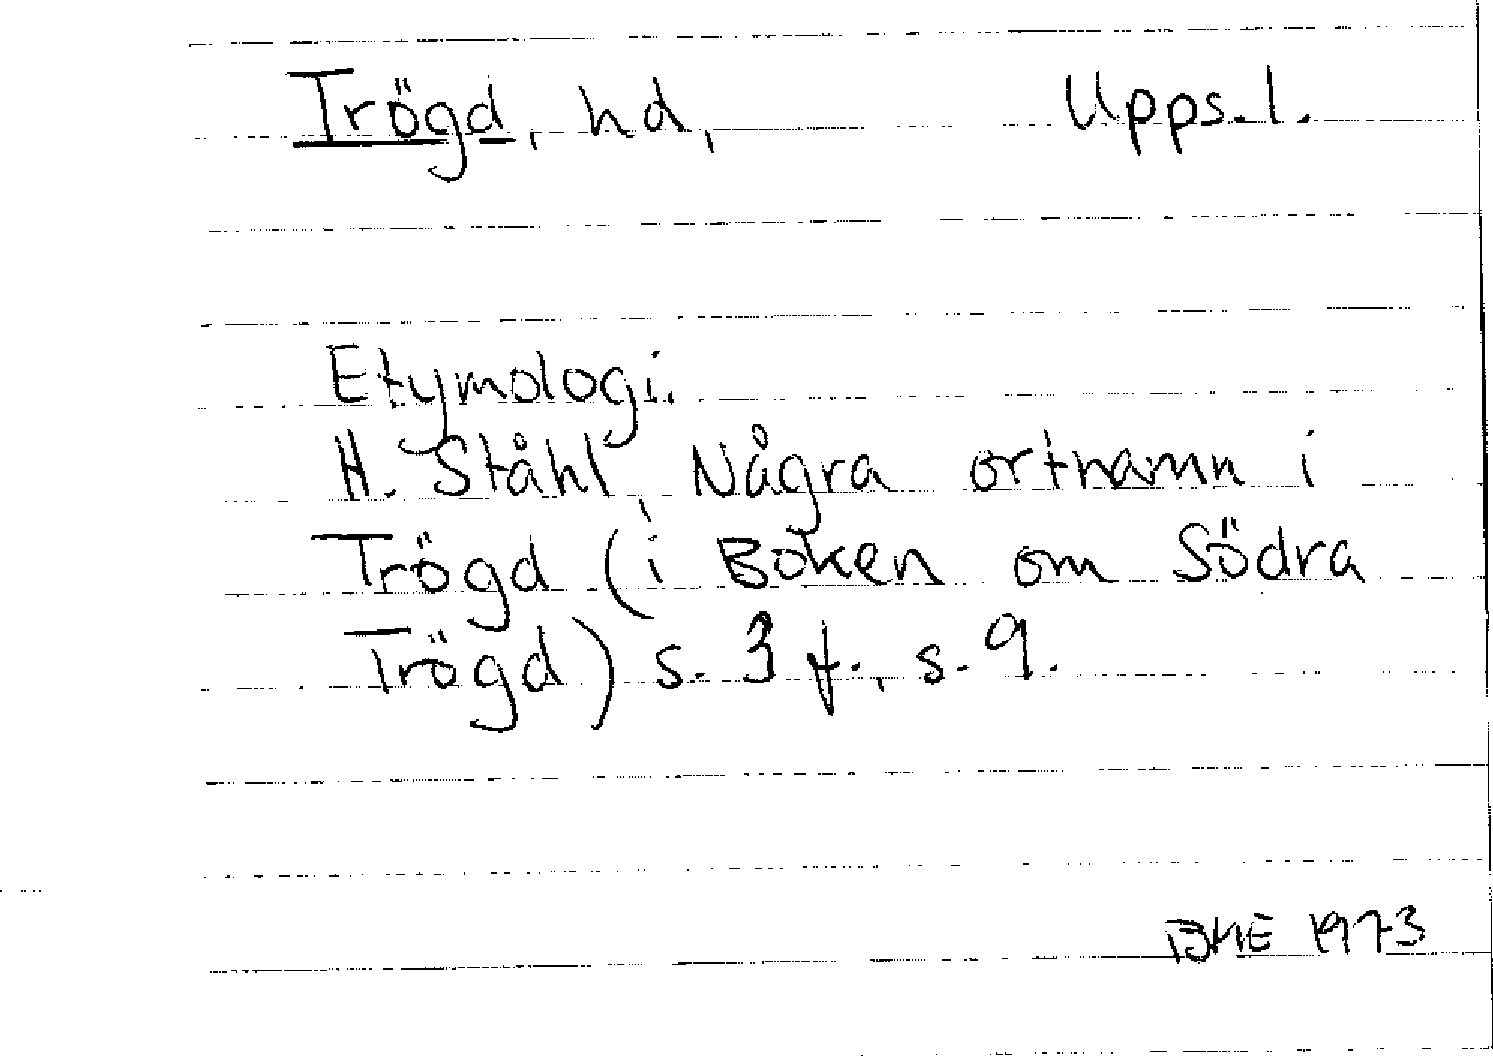 Trögd, hd, Upps. l.
Etymologi.
H. Ståhl, Några ortnamn i
Trögd (i Boken om Södra
Trögd) s. 3 f., s. 9.
1973